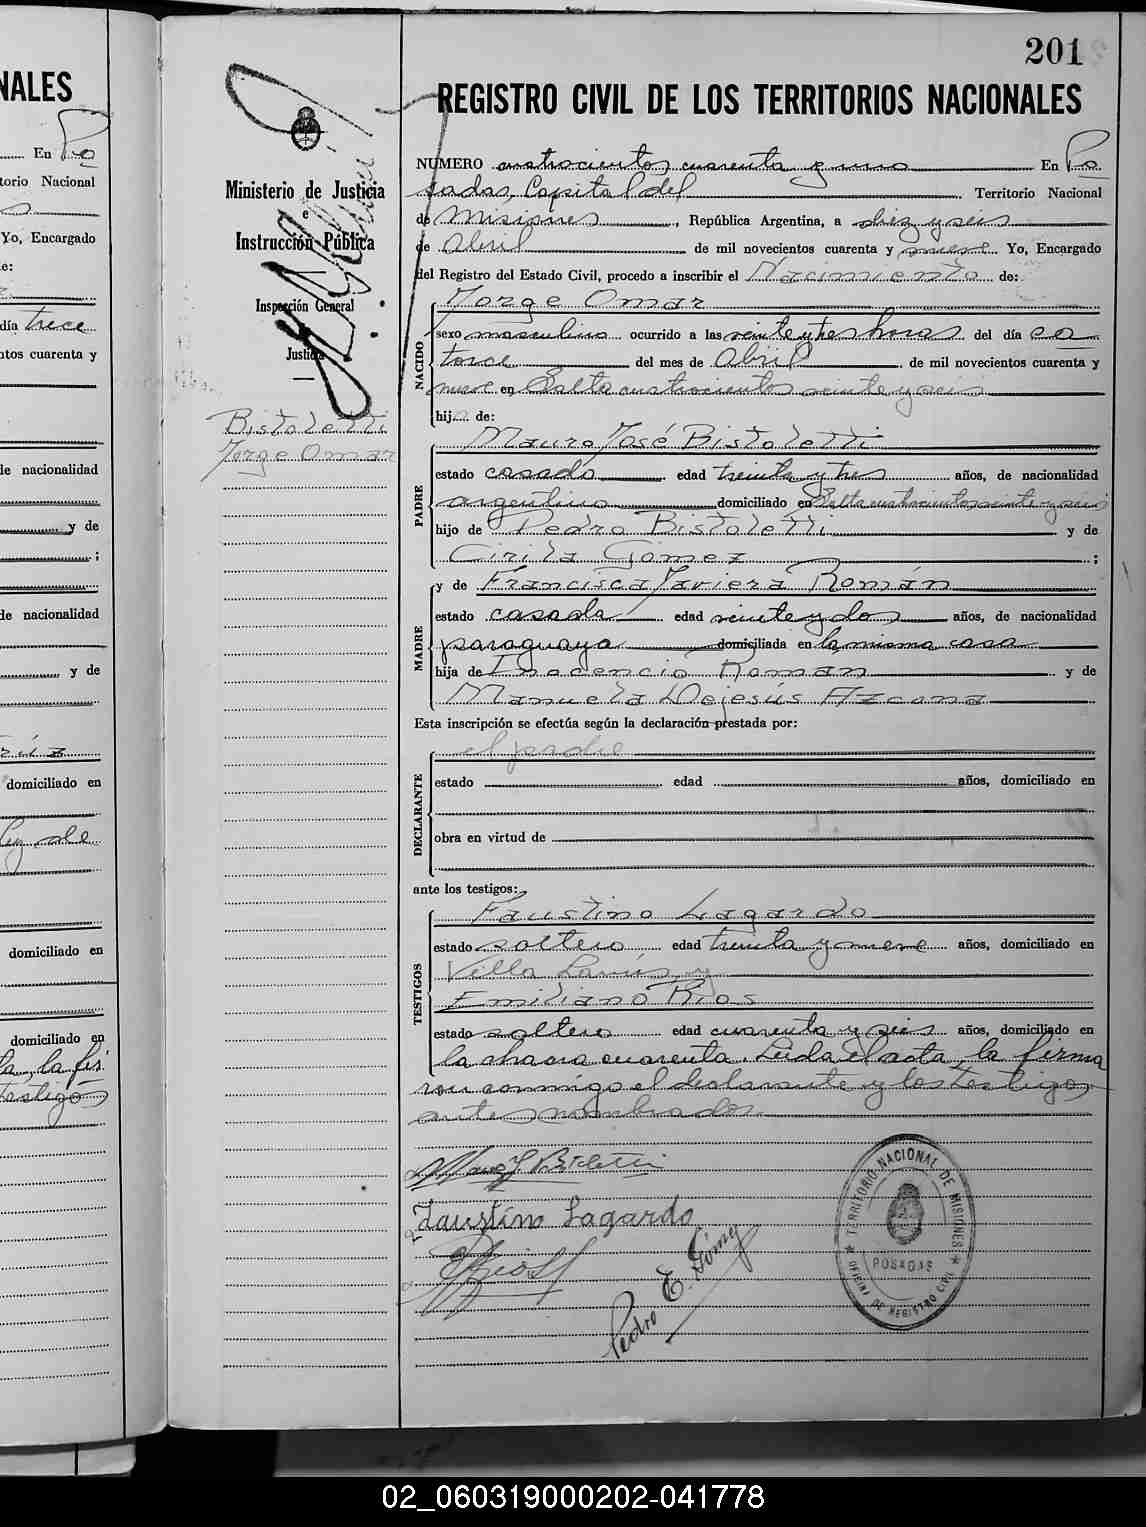 NALES
En Po
torio Nacional
Yo, Encargado
e:
día trece
ntos cuarenta y
de nacionalidad
y de
;
de nacionalidad
y de
domiciliado en
domiciliado en
domiciliado en
ta, la fir
testigos
201
REGISTRO CIVIL DE LOS TERRITORIOS NACIONALES
Ministerio de Justicia
e
Instrucción Pública
Inspección General
Justicia
Bistoletti
Jorge Omar
NUMERO cuatrocientos cuarenta y uno En Po
sadas, Capital del Territorio Nacional
de Misiones, República Argentina, a diez y seis
de Abril de mil novecientos cuarenta y nueve Yo, Encargado
del Registro del Estado Civil, procedo a inscribir el Nacimiento de:
NACIDO
Jorge Omar
sexo masculino ocurrido a las veinte y tres horas del día ca
torce del mes de Abril de mil novecientos cuarenta y
nueve en Salta cuatrocientos veinte y seis
hij de:
PADRE
Mauro José Bistoletti
estado casado edad treinta y tres años, de nacionalidad
argentino domiciliado en Salta cuatrocientos veinte y seis
hijo de Pedro Bistoletti y de
Cirila Gómez ;
MADRE
y de Francisca Javiera Román
estado casada edad veinte y dos años, de nacionalidad
paraguaya domiciliada en la misma casa
hija de Inocencio Román y de
Manuela Dejesús Azcona
Esta inscripción se efectúa según la declaración prestada por:
DECLARANTE
el padre
estado edad años, domiciliado en
obra en virtud de
ante los testigos:
TESTIGOS
Faustino Lagardo
estado soltero edad treinta y nueve años, domiciliado en
Villa Lanús y
Emiliano Rios
estado soltero edad cuarenta y seis años, domiciliado en
la chacra cuarenta. Leída el acta, la firma
ron conmigo el declarante y los testigos
antes nombrados.
Mauro J Bistoletti
Faustino Lagardo
E Rios
Pedro E. Gómez
TERRITORIO NACIONAL DE MISIONES
POSADAS
OFICINA DE REGISTRO CIVIL
02_060319000202-041778